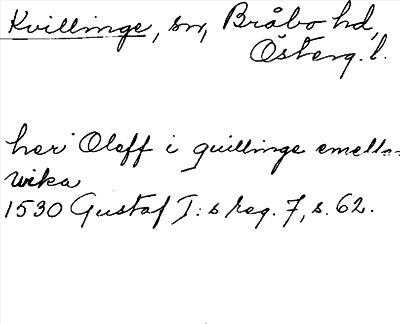 Kvillinge, sn, Bråbo hd,
Österg. l.
her Oleff i quillinge emella-
wika
1530 Gustaf I:s reg. 7, s. 62.